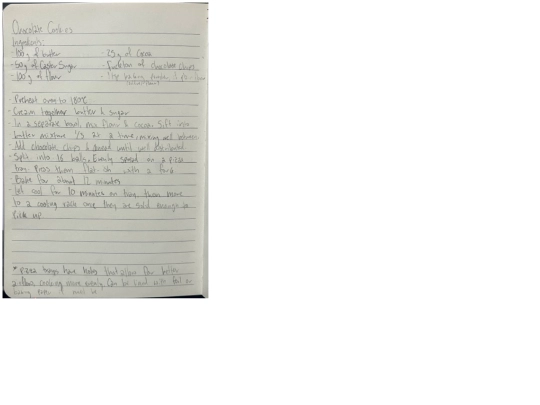 Chocolate Cookies
Ingredients:
- 100g of butter - 25g of Cocoa
- 50g of Caster Sugar - of chocolate chips
- 100g of flour - 1 tsp baking powder
- Preheat oven to 180°C
- Cream together butter & sugar
- In a seperate bowl, mix flour & cocoa. Sift into
butter mixture 1/3 at a time, mixing well between
- Add chocolate chips & knead until well distributed
- Split into 16 balls. Evenly spread on a pizza
tray. Press them flat-ish with a fork
- Bake for about 12 minutes
- Let cool for 10 minutes on tray, then move
to a cooling rack once they are solid enough to
pick up
* Pizza trays have holes that allow for better
airflow, cooking more evenly. Can be lined with foil or
baking paper if